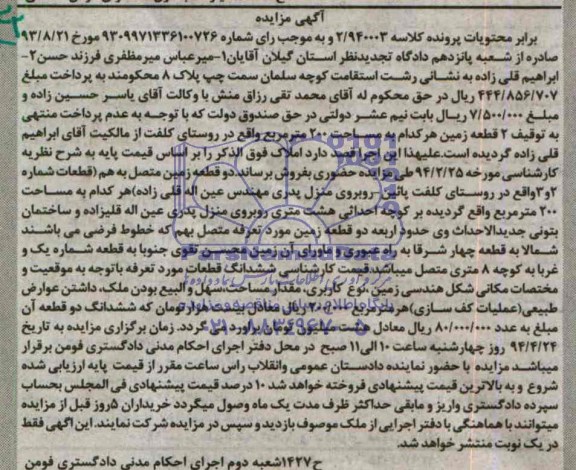 آگهی مزایده
برابر محتویات پرونده کلاسه ۲/۹۴۰۰۰۳ و به موجب رای شماره ۹۳۰۹۹۷۱۳۳۶۱۰۰۷۲۶ مورخ ۹۳/۸/۲۱
صادره از شعبه پانزدهم دادگاه تجدیدنظر استان گیلان آقایان۱-میرعباس میرمظفری فرزند حسن۲-
ابراهیم قلی زاده به نشانی رشت استقامت کوچه سلمان سمت چپ پلاک ۸ محکومند به پرداخت مبلغ
۴۴۴/۸۵۶/۷۰۷ ریال در حق محکوم له آقای محمد تقی رزاق منش با وکالت آقای یاسر حسین زاده و
مبلغ ۷/۵۰۰/۰۰۰ ریال بابت نیم عشر دولتی در حق صندوق دولت که با توجه به عدم پرداخت منتهی
به توقیف ۲ قطعه زمین هرکدام به مساحت ۲۰۰ مترمربع واقع در روستای کلفت از مالکیت آقای ابراهیم
قلی زاده گردیده است.علیهذا این اجرا قصد دارد املاک فوق الذکر را بر اساس قیمت پایه به شرح نظریه
کارشناسی مورخه ۹۴/۲/۲۵ طی مزایده حضوری بفروش برساند.دو قطعه زمین متصل به هم (قطعات شماره
۲و۳واقع در روستای کلفت پائین-روبروی منزل پدری مهندس عین اله قلی زاده)هر کدام به مساحت
۲۰۰ مترمربع واقع گردیده بر کوچه احداثی هشت متری روبروی منزل پدری عین اله قلیزاده و ساختمان
بتونی جدیدالاحداث وی حدود اربعه دو قطعه زمین مورد تعرفه متصل بهم که خطوط فرضی می باشند
شمالا به قطعه چهار شرقا به راه عبوری و ماورای آن زمین محسن تقوی جنوبا به قطعه شماره یک و
غربا به کوچه ۸ متری متصل میباشد.قیمت کارشناسی ششدانگ قطعات مورد تعرفه باتوجه به موقعیت و
مختصات مکانی شکل هندسی زمین نوع کاربری،مقدار مساحت،سهل و البیع بودن ملک، داشتن عوارض
طبیعی(عملیات کف سازی)هر مترمربع ۲۰۰/۰۰۰ ریال معادل بیست هزار تومان که ششدانگ دو قطعه آن
مبلغ به عدد ۸۰/۰۰۰/۰۰۰ ریال معادل هشت میلیون تومان برآورد می گردد. زمان برگزاری مزایده به تاریخ
۹۴/۴/۲۴ روز چهارشنبه ساعت ۱۰ الی۱۱ صبح در محل دفتر اجرای احکام مدنی دادگستری فومن برقرار
میباشد مزایده با حضور نماینده دادستان عمومی وانقلاب راس ساعت مقرر از قیمت پایه ارزیابی شده
شروع و به بالاترین قیمت پیشنهادی فروخته خواهد شد ۱۰ درصد قیمت پیشنهادی فی المجلس بحساب
سپرده دادگستری واریز و مابقی حداکثر ظرف مدت یک ماه وصول میگردد خریداران ۵روز قبل از مزایده
میتوانند با هماهنگی با دفتر اجرایی از ملک موصوف بازدید و سپس در مزایده شرکت نمایند. این آگهی فقط
در یک نوبت منتشر خواهد شد.
ح۱۴۲۷شعبه دوم اجرای احکام مدنی دادگستری فومن